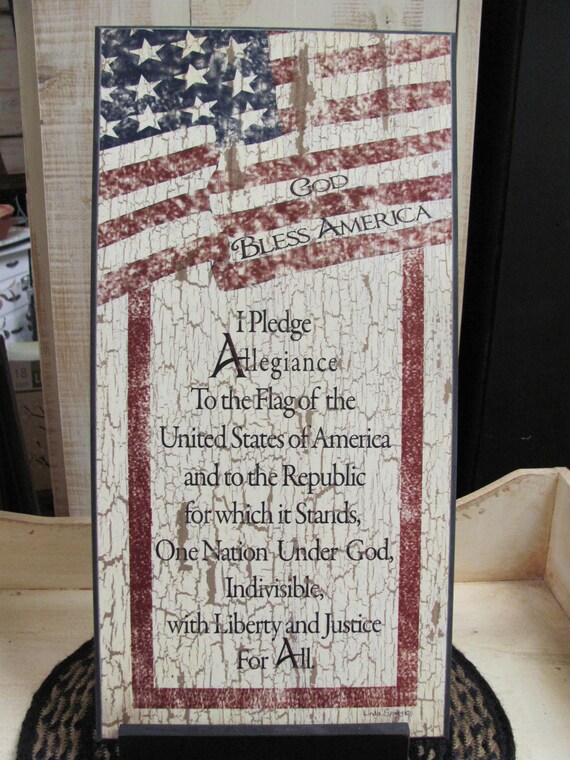 God
Bless America
I Pledge
Allegiance
To the Flag of the
United States of America
and to the Republic
for which it Stands,
One Nation Under God,
Indivisible,
with Liberty and Justice
For All.
Linda
18